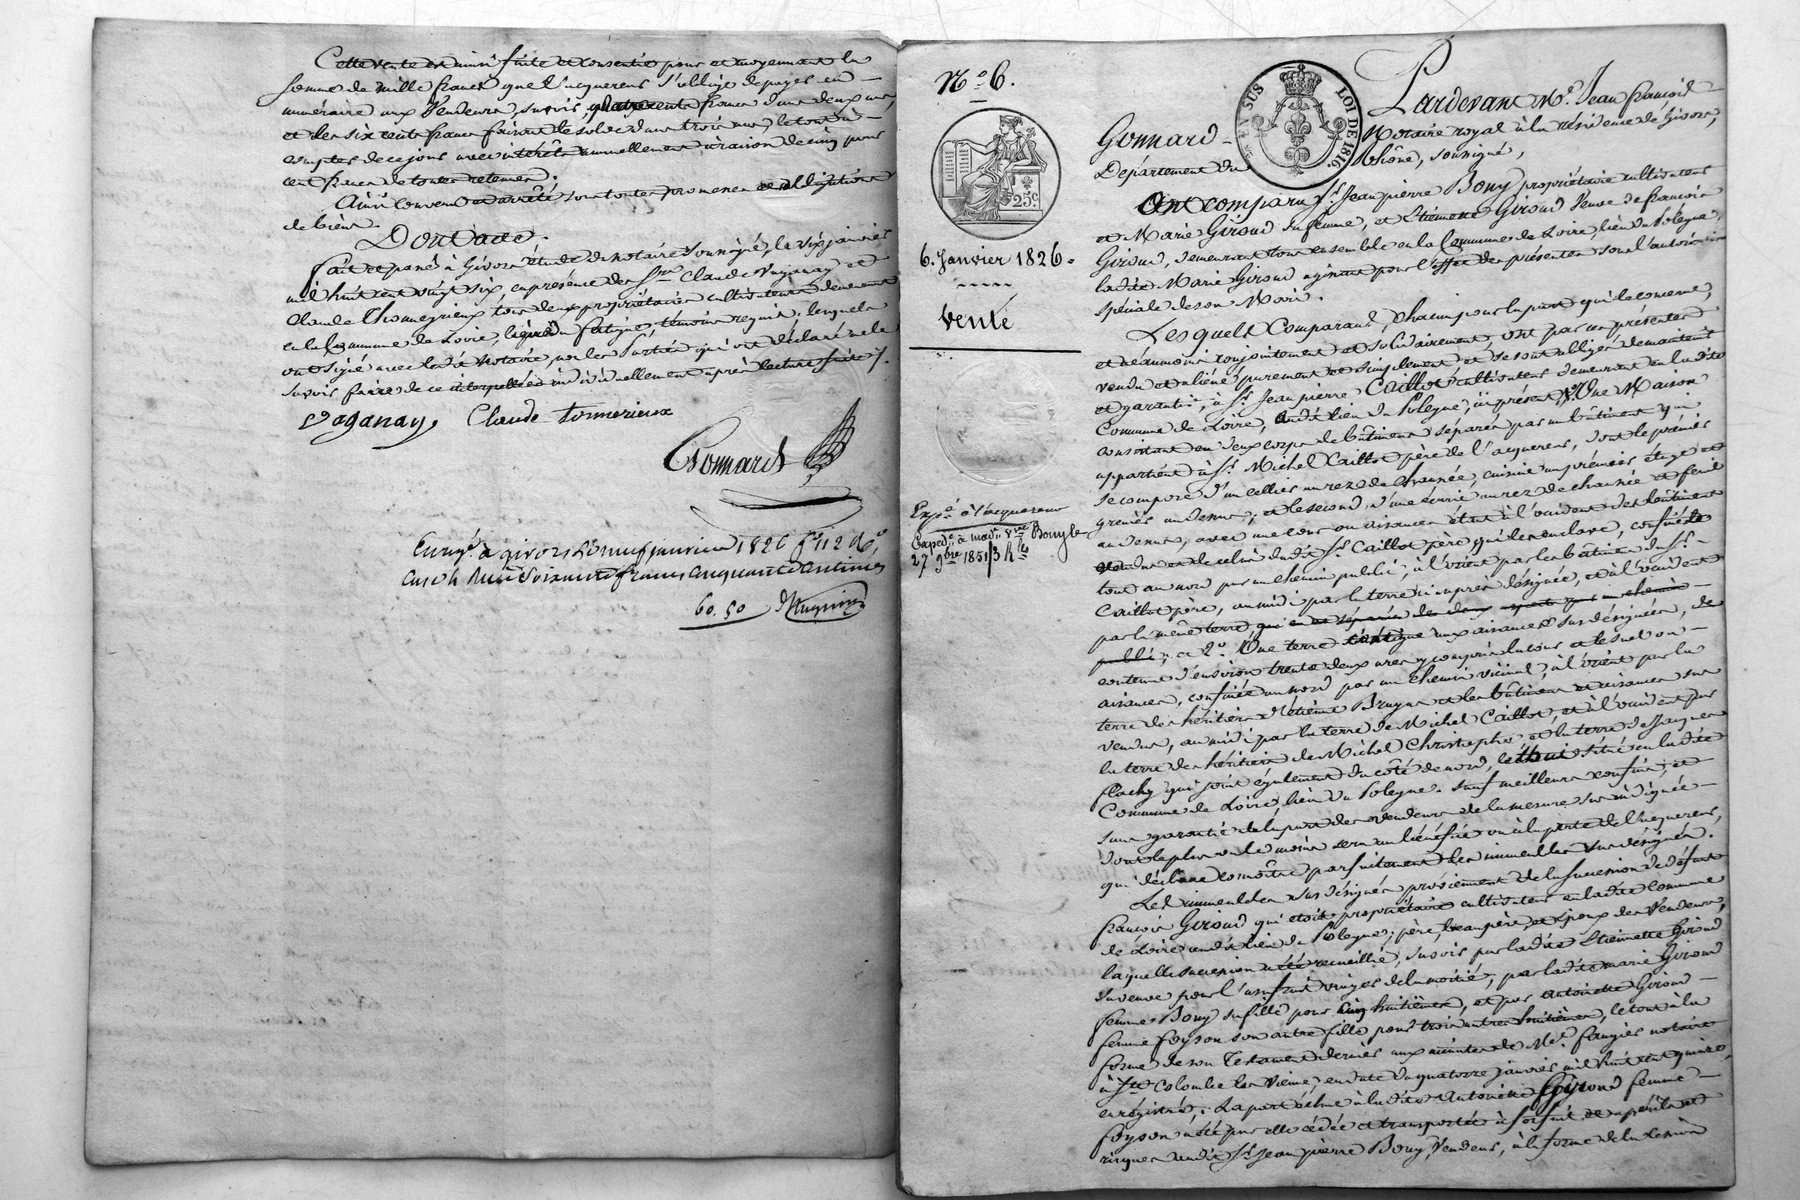 Cette vente est ainsi faite et consentie pour et moyennant la
somme de mille francs que l'acquéreur s'oblige de payer en
numéraire aux Vendeurs, savoir, quatre cents francs dans deux ans,
et les six cents francs faisant le solde dans trois ans, le tout à
compter de ce jour avec intérêts annuellement à raison de cinq pour
cent francs de toutes retenues.
Ainsi convenu et arrêté sous toutes promesses et obligations
de biens.
Dont acte.
Fait et passé à Givors étude du notaire soussigné, le six janvier
mil huit cent vingt six, en présence des Srs Claude Vaganay et
Claude Thomeyrieux tous deux propriétaires cultivateurs demeurant
en la Commune de Loire, témoins requis, lesquels
ont signé avec ledit Notaire, non les Parties qui ont déclaré ne le
savoir faire de ce interpellées individuellement après lecture faite /.
Vaganay Claude tomerieux
Gonnard
Enregé à givors le neuf janvier 1826 fo 112 Ro
Case 4 Reçu Soixante francs cinquante Centimes
60,50
No 6.
25c
6. Janvier 1826
Vente
Expé à l'acquereur
Expedé à made Vve Bony le
27 9bre 1851
EN SUS
LOI DE 1816.
Pardevant Me Jean françois
Gonnard Notaire royal à la résidence de Givors,
Département du Rhône, soussigné,
Ont comparu Sr Jean pierre Bony propriétaire cultivateur
et Marie Giroud sa femme, et Etiennette Giroud Veuve de françois
Giroud, demeurant tous ensemble en la Commune de Loire, lieu du Pologne,
ladite Marie Giroud agissant pour l'effet des présentes sous l'autorisation
spéciale de son Mari.
Lesquels Comparants, chacun pour la part qui le concerne,
et néanmoins conjointement et solidairement, ont par ces présentes
vendu et aliéné purement et simplement et se sont obligés de maintenir
et garantir, à Sr Jean pierre Caillot cultivateur demeurant en ladite
Commune de Loire, audit lieu du Pologne, ici présent, 1o Une Maison
consistant en deux corps de bâtiment séparés par un bâtiment qui
appartient à Sr Michel Caillot père de l'acquéreur, dont le premier
se compose d'un cellier au rez de chaussée, cuisine au premier étage et
grenier au dessus, et le second d'une écurie au rez de chaussée et fenil
au dessus, avec une cour ou aisances étant à l'occident des bâtiments
vendus et de celui dudit Sr Caillot père qui les enclave, confinés le
tout au nord par un chemin public, à l'orient par les bâtiments du Sr
Caillot père, au midi par la terre ci après désignée, et à l'occident
par la même terre qui en est séparée
public; et 2o Une terre contigue aux aisances sus désignées, de
contenue d'environ trente deux ares y compris la cour et le sol ou
aisances, confinée au nord par un chemin vicinal, à l'orient par la
terre des héritiers d'étienne Bruyas et les bâtiments et aisances sus
vendus, au midi par la terre de Michel Caillot, et à l'occident par
la terre des héritiers de Michel Christophe et la terre de Jacques
flachy qui joint également du côté de nord, le tout situé en ladite
Commune de Loire, lieu du Pologne. Sauf meilleurs confins, et
sans garantie de la part des vendeurs de la mesure sus indiquée
dont le plus ou le moins sera au bénéfice ou à la perte de l'acquéreur,
qui déclare connoître parfaitement les immeubles sus désignés.
Les immeubles sus désignés proviennent de la succession de défunt
françois Giroud qui étoit propriétaire cultivateur en ladite Commune
de Loire audit lieu du Pologne, père, beaupère, et époux des Vendeurs,
laquelle succession a été recueillie, savoir par ladite Etiennette Giroud
sa veuve pour l'usufruit viager de la moitié, par ladite marie Giroud
femme Bony sa fille pour cinq huitièmes, et par Antoinette Giroud
femme foyson son autre fille pour trois autres huitièmes, le tout à la
forme de son Testament dernier aux minutes de Me faugier notaire
à Ste Colombe les Vienne, en date du quatorze janvier mil huit cent quinze,
enregistré. La part échue à ladite Antoinette Giroud femme
foyson a été par elle cédée et transportée à forfait de ses périls et
risques audit Sr Jean pierre Bony, Vendeur, à la forme de la cession